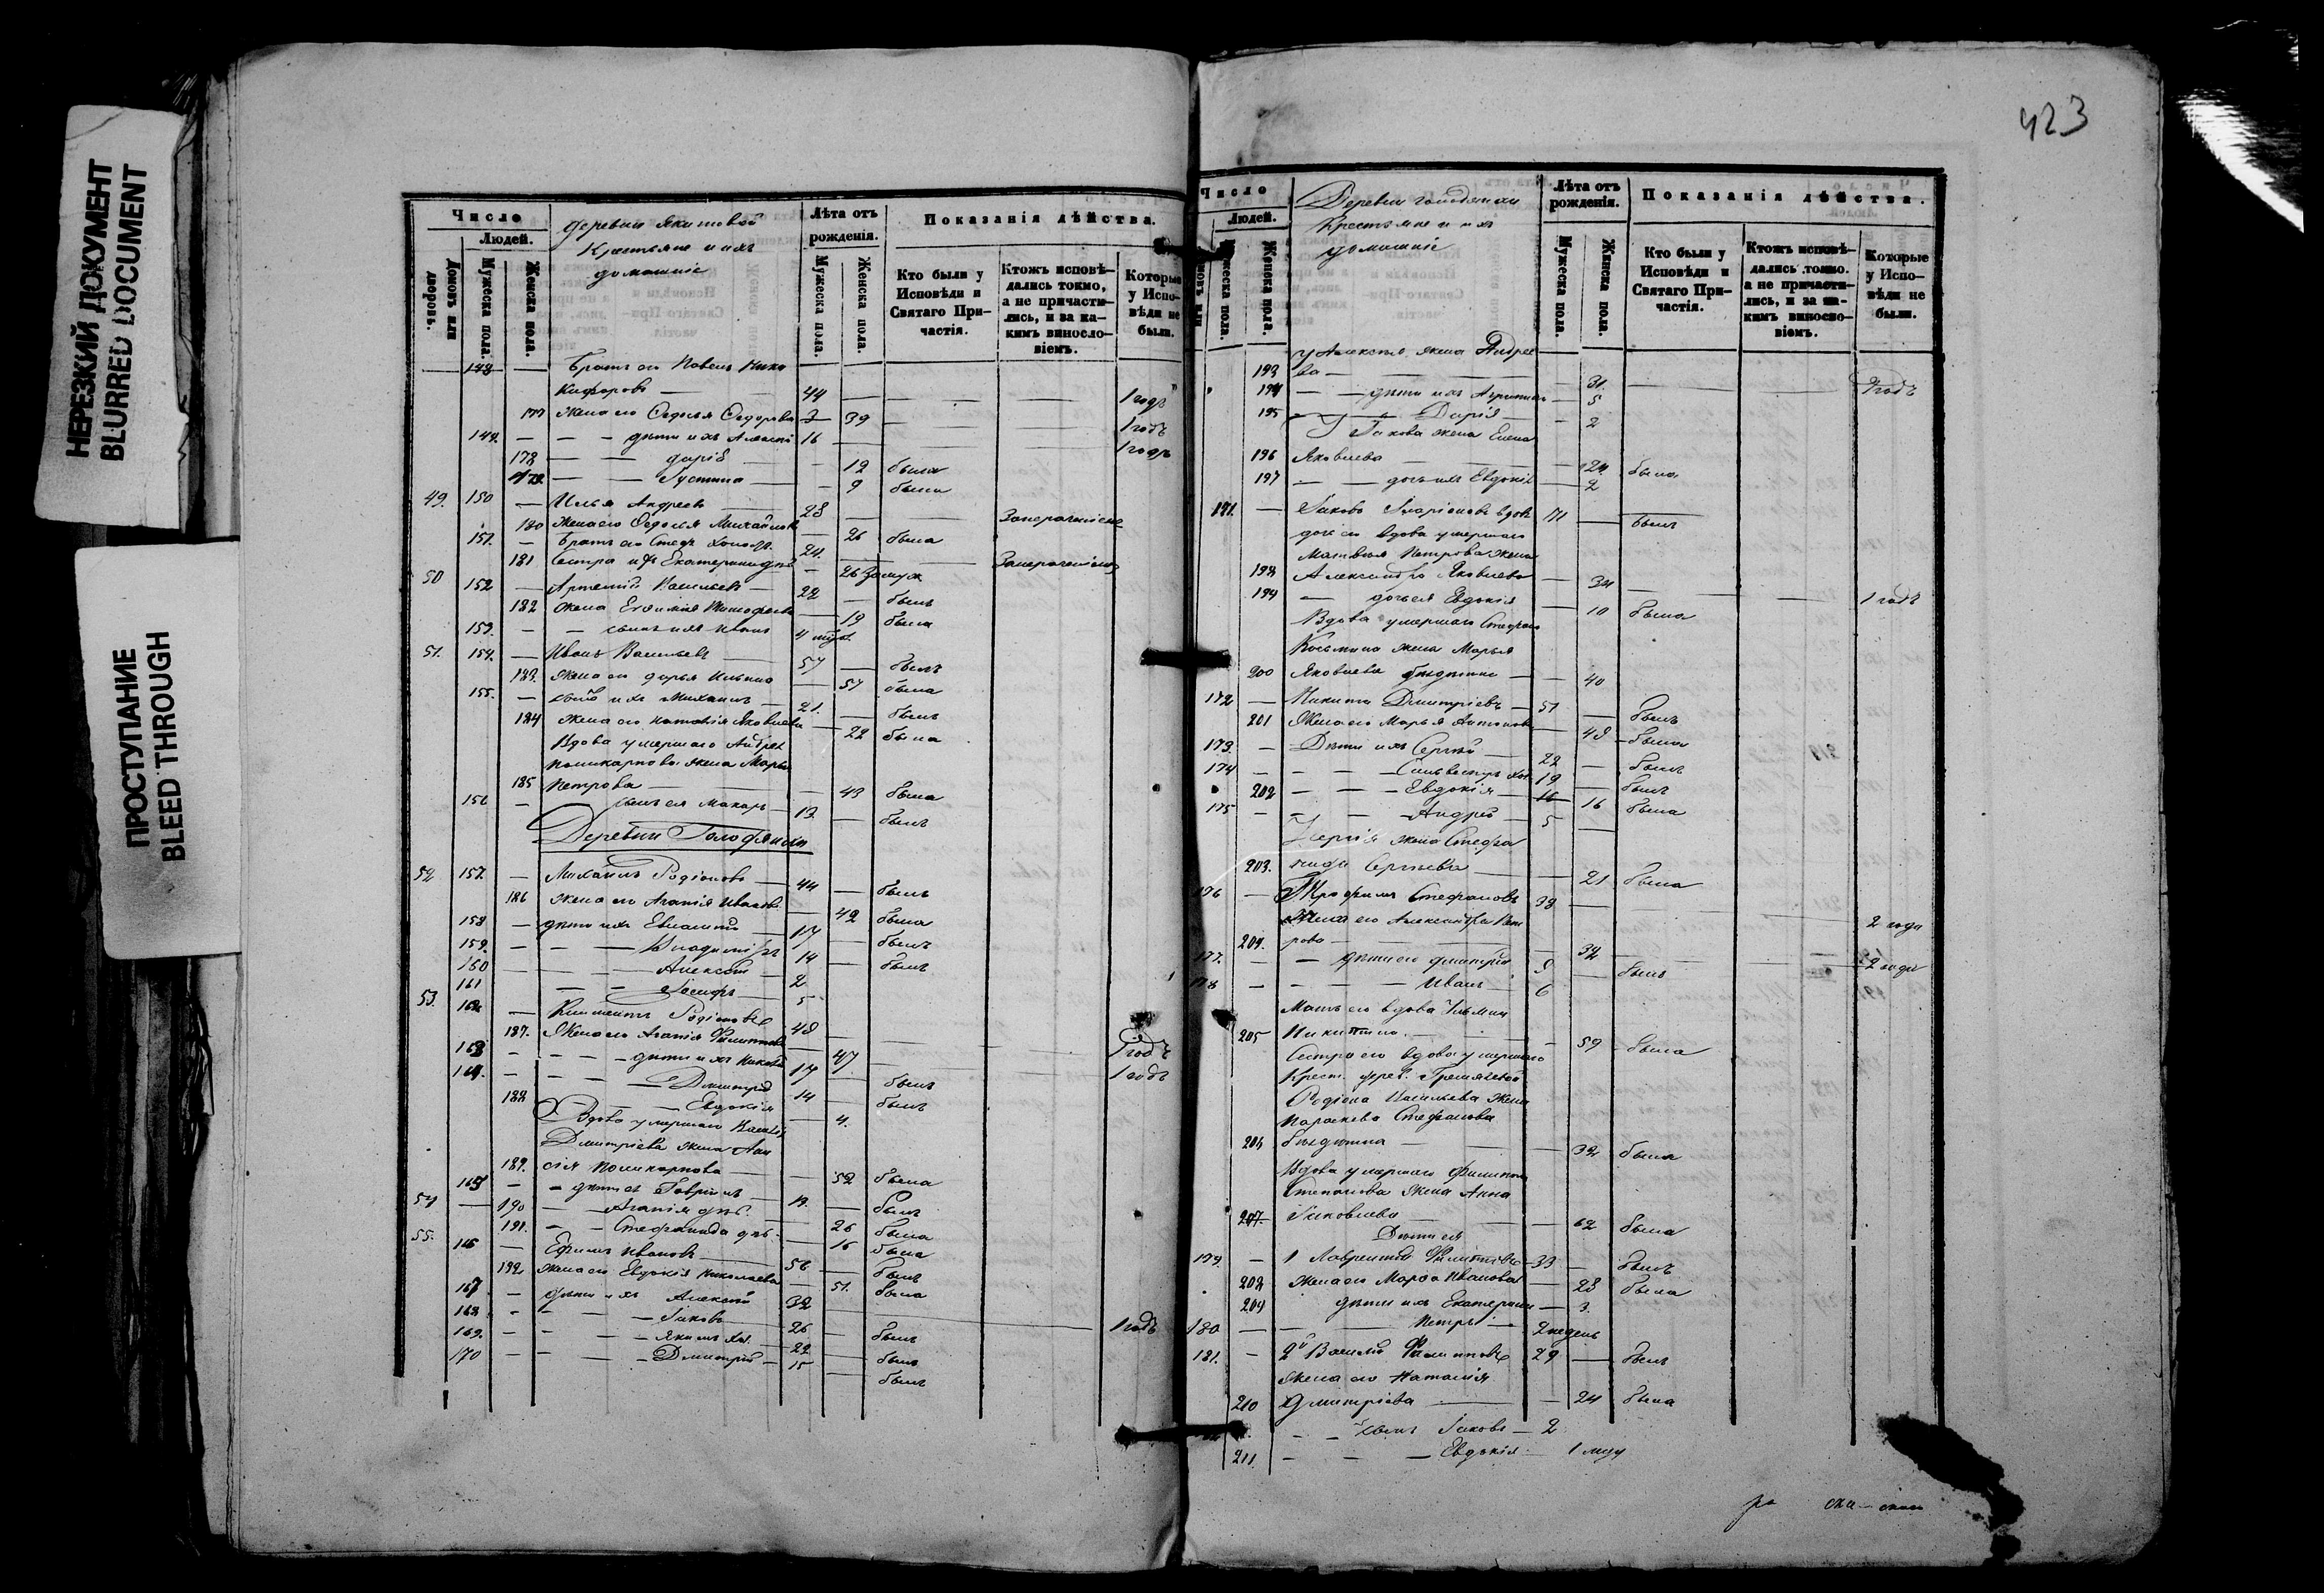 НЕРЕЗКИЙ ДОКУМЕНТ
BLURRED DOCUMENT
ПРОСТУПАНИЕ
BLEED THROUGH
Число
Людей.
Домовъ или дворовъ.
Мужеска пола.
Женска пола.
деревни Якимовой
Крестьяне и ихъ
домашніе
Лѣта отъ рожденія.
Мужеска пола.
Женска пола.
Показанія дѣйства.
Кто были у Исповѣди и Святаго Причастія.
Ктожъ исповѣдались токмо, а не причастились, и за какимъ винословіемъ.
Которые у Исповѣди не были.
148 Братъ его Павелъ Ники
кифоровъ 44 1 годъ
177 Жена его Ѳедосья Ѳедорова 39 1 годъ
149. дѣти ихъ Алексѣй 16 1 годъ
178 дарія 12 была
179. Іустина 9 была
49. 150 Илья Андреевъ 28
180 Жена его Ѳедосья Михайлова 26 была
151. Братъ его Стеф. холост. 24.
181 Сестра ихъ Екатерина 26 Замуж
50 152 Артемій Васильевъ 22 былъ
182 Жена Евѳимія Тимоѳеева 19 была
153. сынъ ихъ Иванъ
51. 154. Иванъ Васильевъ 57 былъ
183. Жена его дарья Ильина 57 была
155. сынъ ихъ Михаилъ 21. былъ
184 Жена его Наталія Яковлева 22 была
Вдова умершаго Андрея
Поликарпова жена Марья
185 Петрова 43 была
156 сынъ ея Макаръ 13 былъ
Деревни Голодяихи
52 157. Михаилъ Родіоновъ 44 былъ
186 Жена его Агапія Иванов. 42 была
158 дѣти ихъ Евлампій 17 былъ
159. Владиміръ 14 былъ
160 Алексѣй 2
161 Іосифъ 5
53. 162 Климентъ Родіоновъ 48 1 годъ
187. Жена его Агапія Филиппова 47 1 годъ
163 дѣти ихъ 17 былъ
164. Дмитрій 14 былъ
188 Евдокія 4.
Вдова умершаго Василія
Дмитріева жена Ани
189. сія Поликарпова 52 была
165 дѣти ея Гавріилъ 19. былъ
54 190 Агапія дѣв. 26 была
191. Стефанида дѣв. 16 была
55. 166 Ефимъ Ивановъ 56 былъ
192 Жена его Евдокія Николаева 51. была
167 дѣти ихъ Алексѣй 32 1 годъ
168. Іаковъ 26 былъ
169. Якимъ Хол. 22 былъ
170 Дмитрій 15 былъ
423
Число
Людей.
Женска пола.
Деревни Голодяихи
Крестьяне и ихъ
домашніе
Лѣта отъ рожденія.
Мужеска пола.
Женска пола.
Показанія дѣйства.
Кто были у Исповѣди и Святаго Причастія.
Ктожъ исповѣдались токмо, а не причастились, и за какимъ винословіемъ.
Которые у Исповѣди не были.
у Алексѣя жена Андрее
193 ва 31. годъ
194 дѣти ихъ 5
195 Дарія 2
У Іакова жена Елена
196 Яковлева 24. была
197 дочь ихъ Евдокія 2
171. Іаковъ Иларіоновъ вдов. 71 былъ
дочь его вдова умершаго
Матвѣя Петрова жена
198 Александра Яковлева 34 1 годъ
199 дочь ея Евдокія 10 была
Вдова умершаго Стефана
Косьмина жена Марья
200 Яковлева 40
172 Никита Дмитріевъ 51 былъ
201 Жена его Марья Антонова 48 была
173. Дѣти ихъ Сергѣй 22 былъ
174 Сильвестръ Хол. 19 былъ
202 Евдокія 16 была
175 Андрей 5
Сергія жена Стефа
203. нида Сергѣева 21 была
176 Трофимъ Стефановъ 38 2 года
Жена его Александра Пет
204. рова 34 2 года
177. дѣти его дмитрій 9 былъ
178 Иванъ 6
Мать его вдова
205 Никитина. 59 была
Сестра его вдова умершаго
Крест. дерев. Гремячевой
Родіона Васильева жена
Параскева Стефанова
206 32 была
Вдова умершаго Филиппа
Степанова жена Анна
207. Іаковлева 62 была
Дѣти ея
179. 1 Лаврентій Филипповъ 33 былъ
208 Жена его Марѳа Иванова 28 была
209 дѣти ихъ Екатерина 3.
180 Петръ 2 недель
181. 2й Василій Филипповъ 29 былъ
Жена его Наталія
210 Дмитріева 24 была
сынъ Іаковъ 2
211. Евдокія 1 мѣц